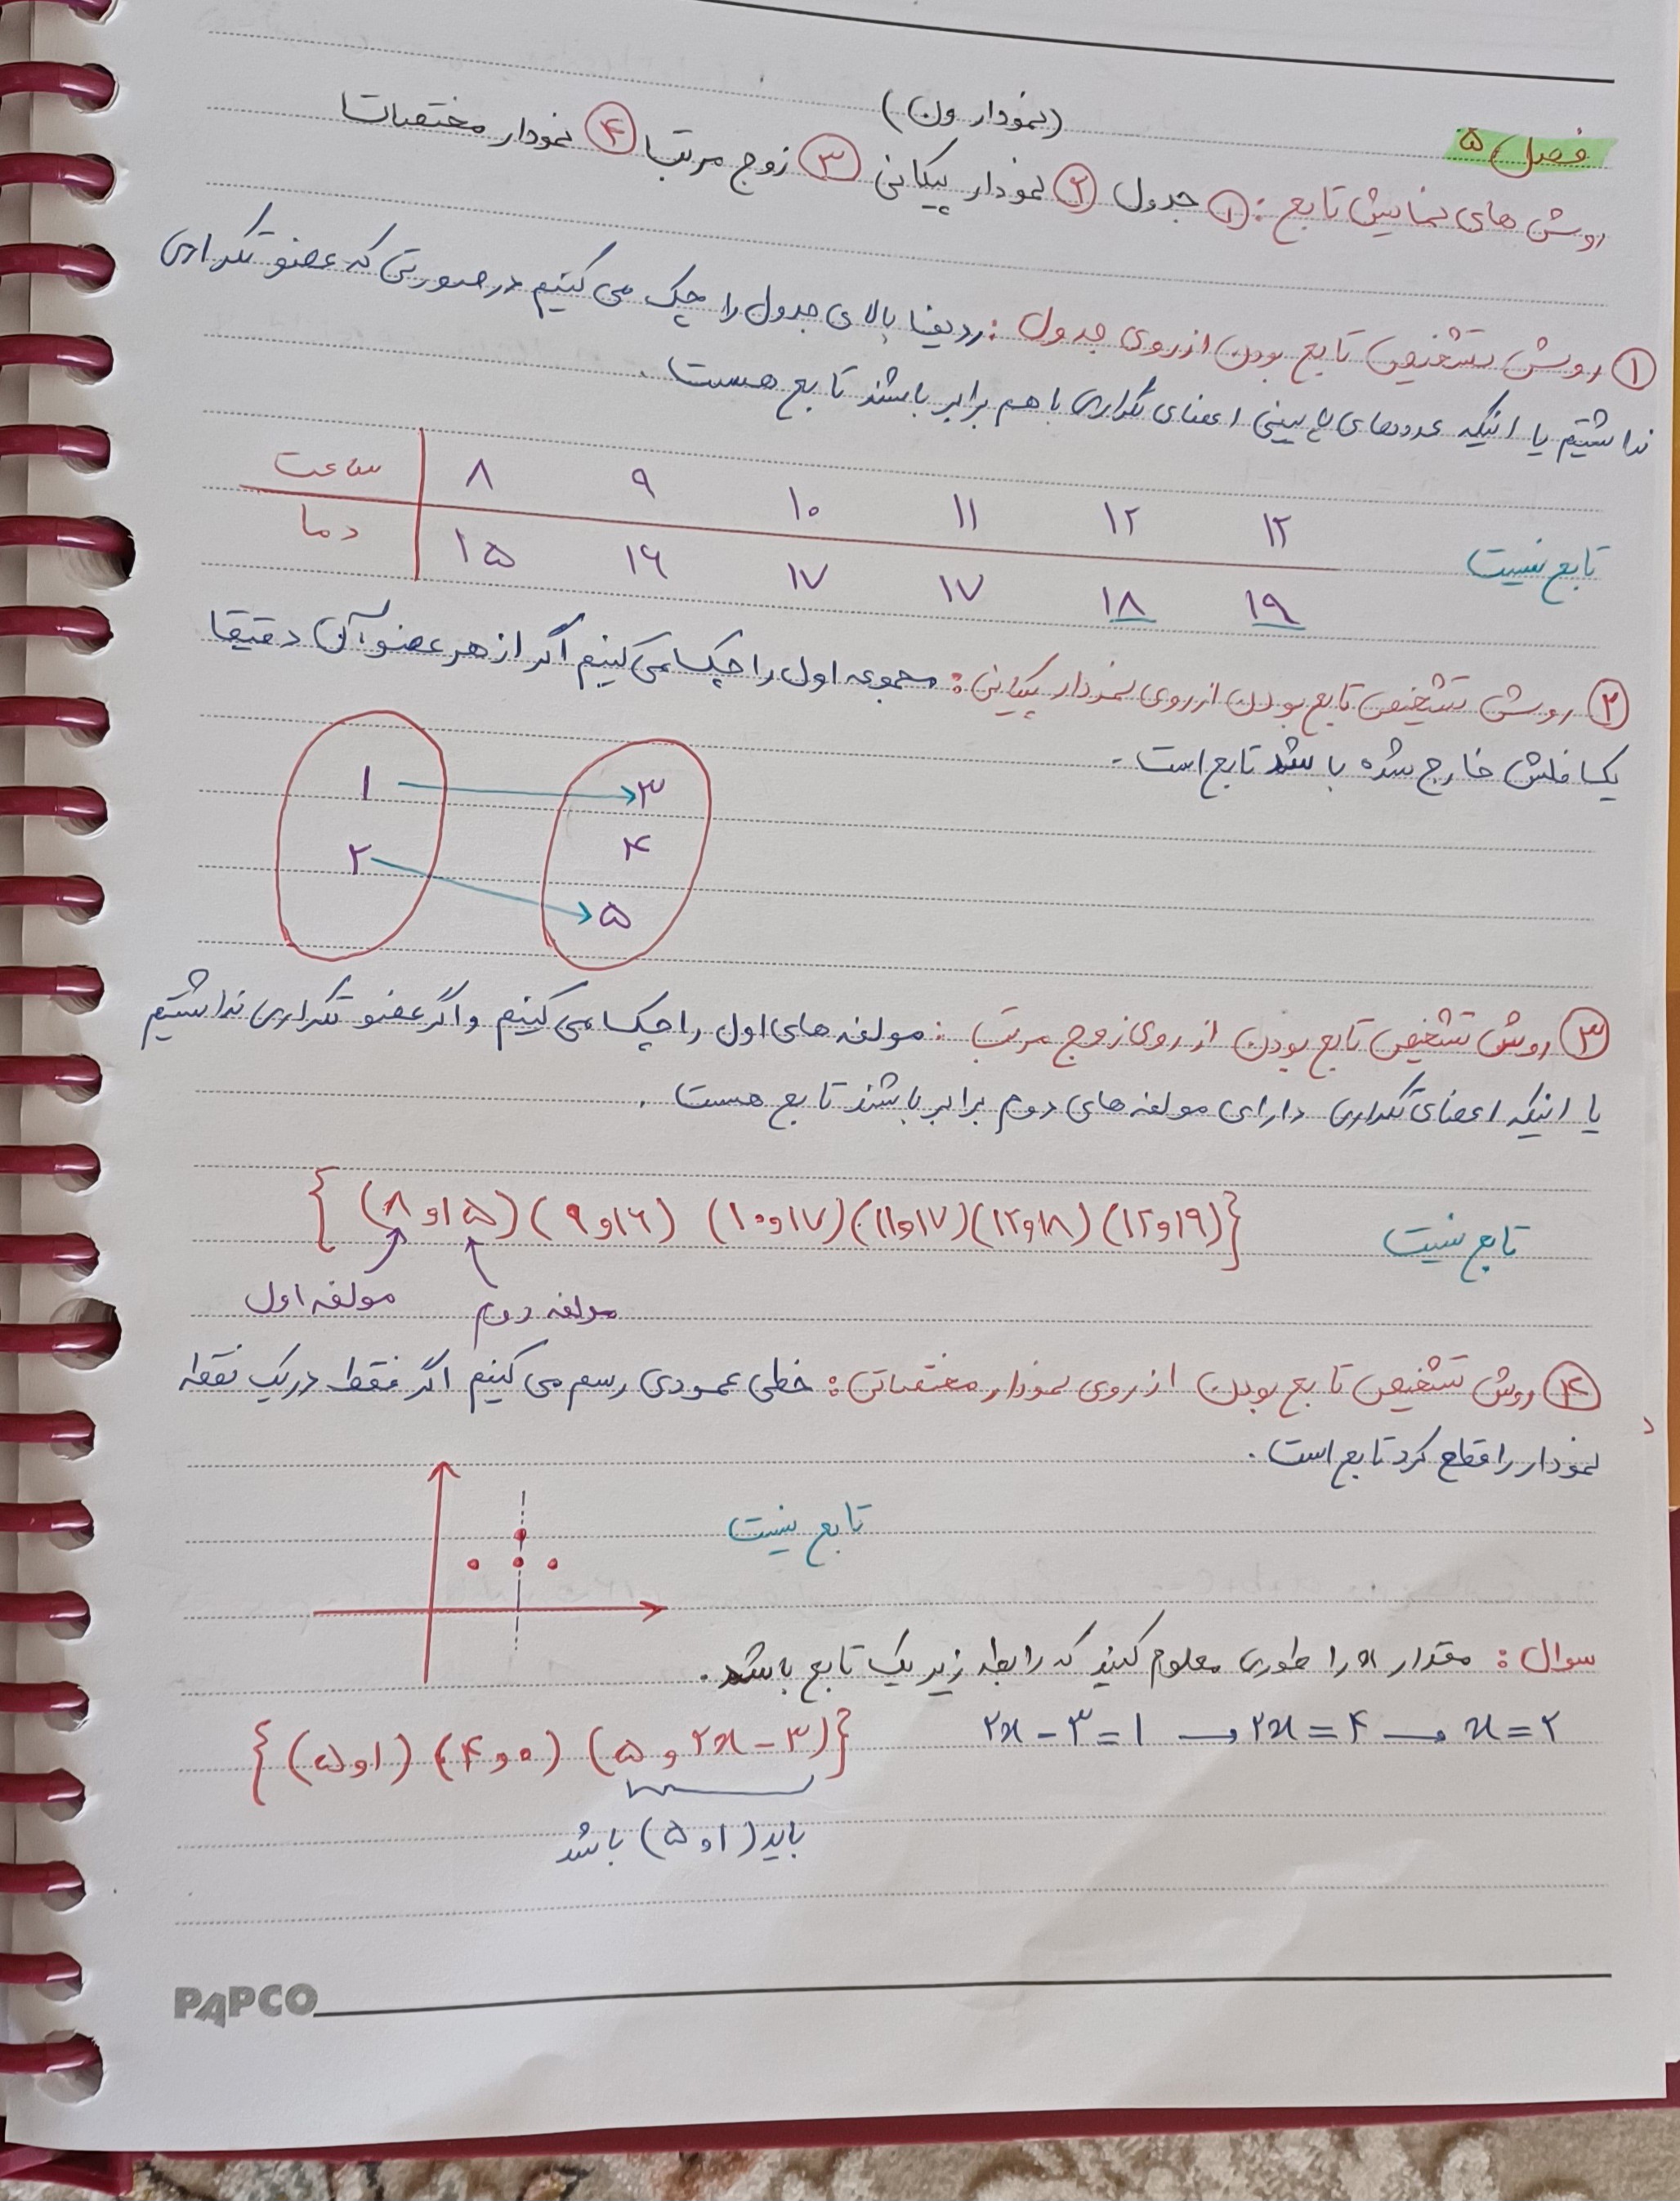 فصل ۵
(نمودار ون)
روش های نمایش تابع : ① جدول ② نمودار پیکانی ③ زوج مرتب ④ نمودار مختصات
① روش تشخیص تابع بودن از روی جدول : ردیف بالای جدول را چک می کنیم در صورتی که عضو تکراری
نداشتیم یا اینکه عددهای پایینی اعضای تکراری با هم برابر باشند تابع هست .
ساعت | ۸ ۹ ۱۰ ۱۱ ۱۲ ۱۲
دما | ۱۵ ۱۶ ۱۷ ۱۷ ۱۸ ۱۹
تابع نیست
② روش تشخیص تابع بودن از روی نمودار پیکانی : مجموعه اول را چک می کنیم اگر از هر عضو آن دقیقا
یک فلش خارج شده باشد تابع است .
۱ → ۳
۴
۲ → ۵
③ روش تشخیص تابع بودن از روی زوج مرتب : مولفه های اول را چک می کنیم و اگر عضو تکراری نداشتیم
یا اینکه اعضای تکراری دارای مولفه های دوم برابر باشند تابع هست .
{(۸ و ۱۵) (۹ و ۱۶) (۱۰ و ۱۷) (۱۱ و ۱۷) (۱۲ و ۱۸) (۱۲ و ۱۹)}
تابع نیست
مولفه اول
مولفه دوم
④ روش تشخیص تابع بودن از روی نمودار مختصاتی : خطی عمودی رسم می کنیم اگر فقط در یک نقطه
نمودار را قطع کرد تابع است .
تابع نیست
سوال : مقدار x را طوری معلوم کنید که رابطه زیر یک تابع باشد .
{(۵ و ۱) (۴ و ۰) (۵ و ۲x - ۳)}
۲x - ۳ = ۱ → ۲x = ۴ → x = ۲
باید (۵ و ۱) باشد
PAPCO